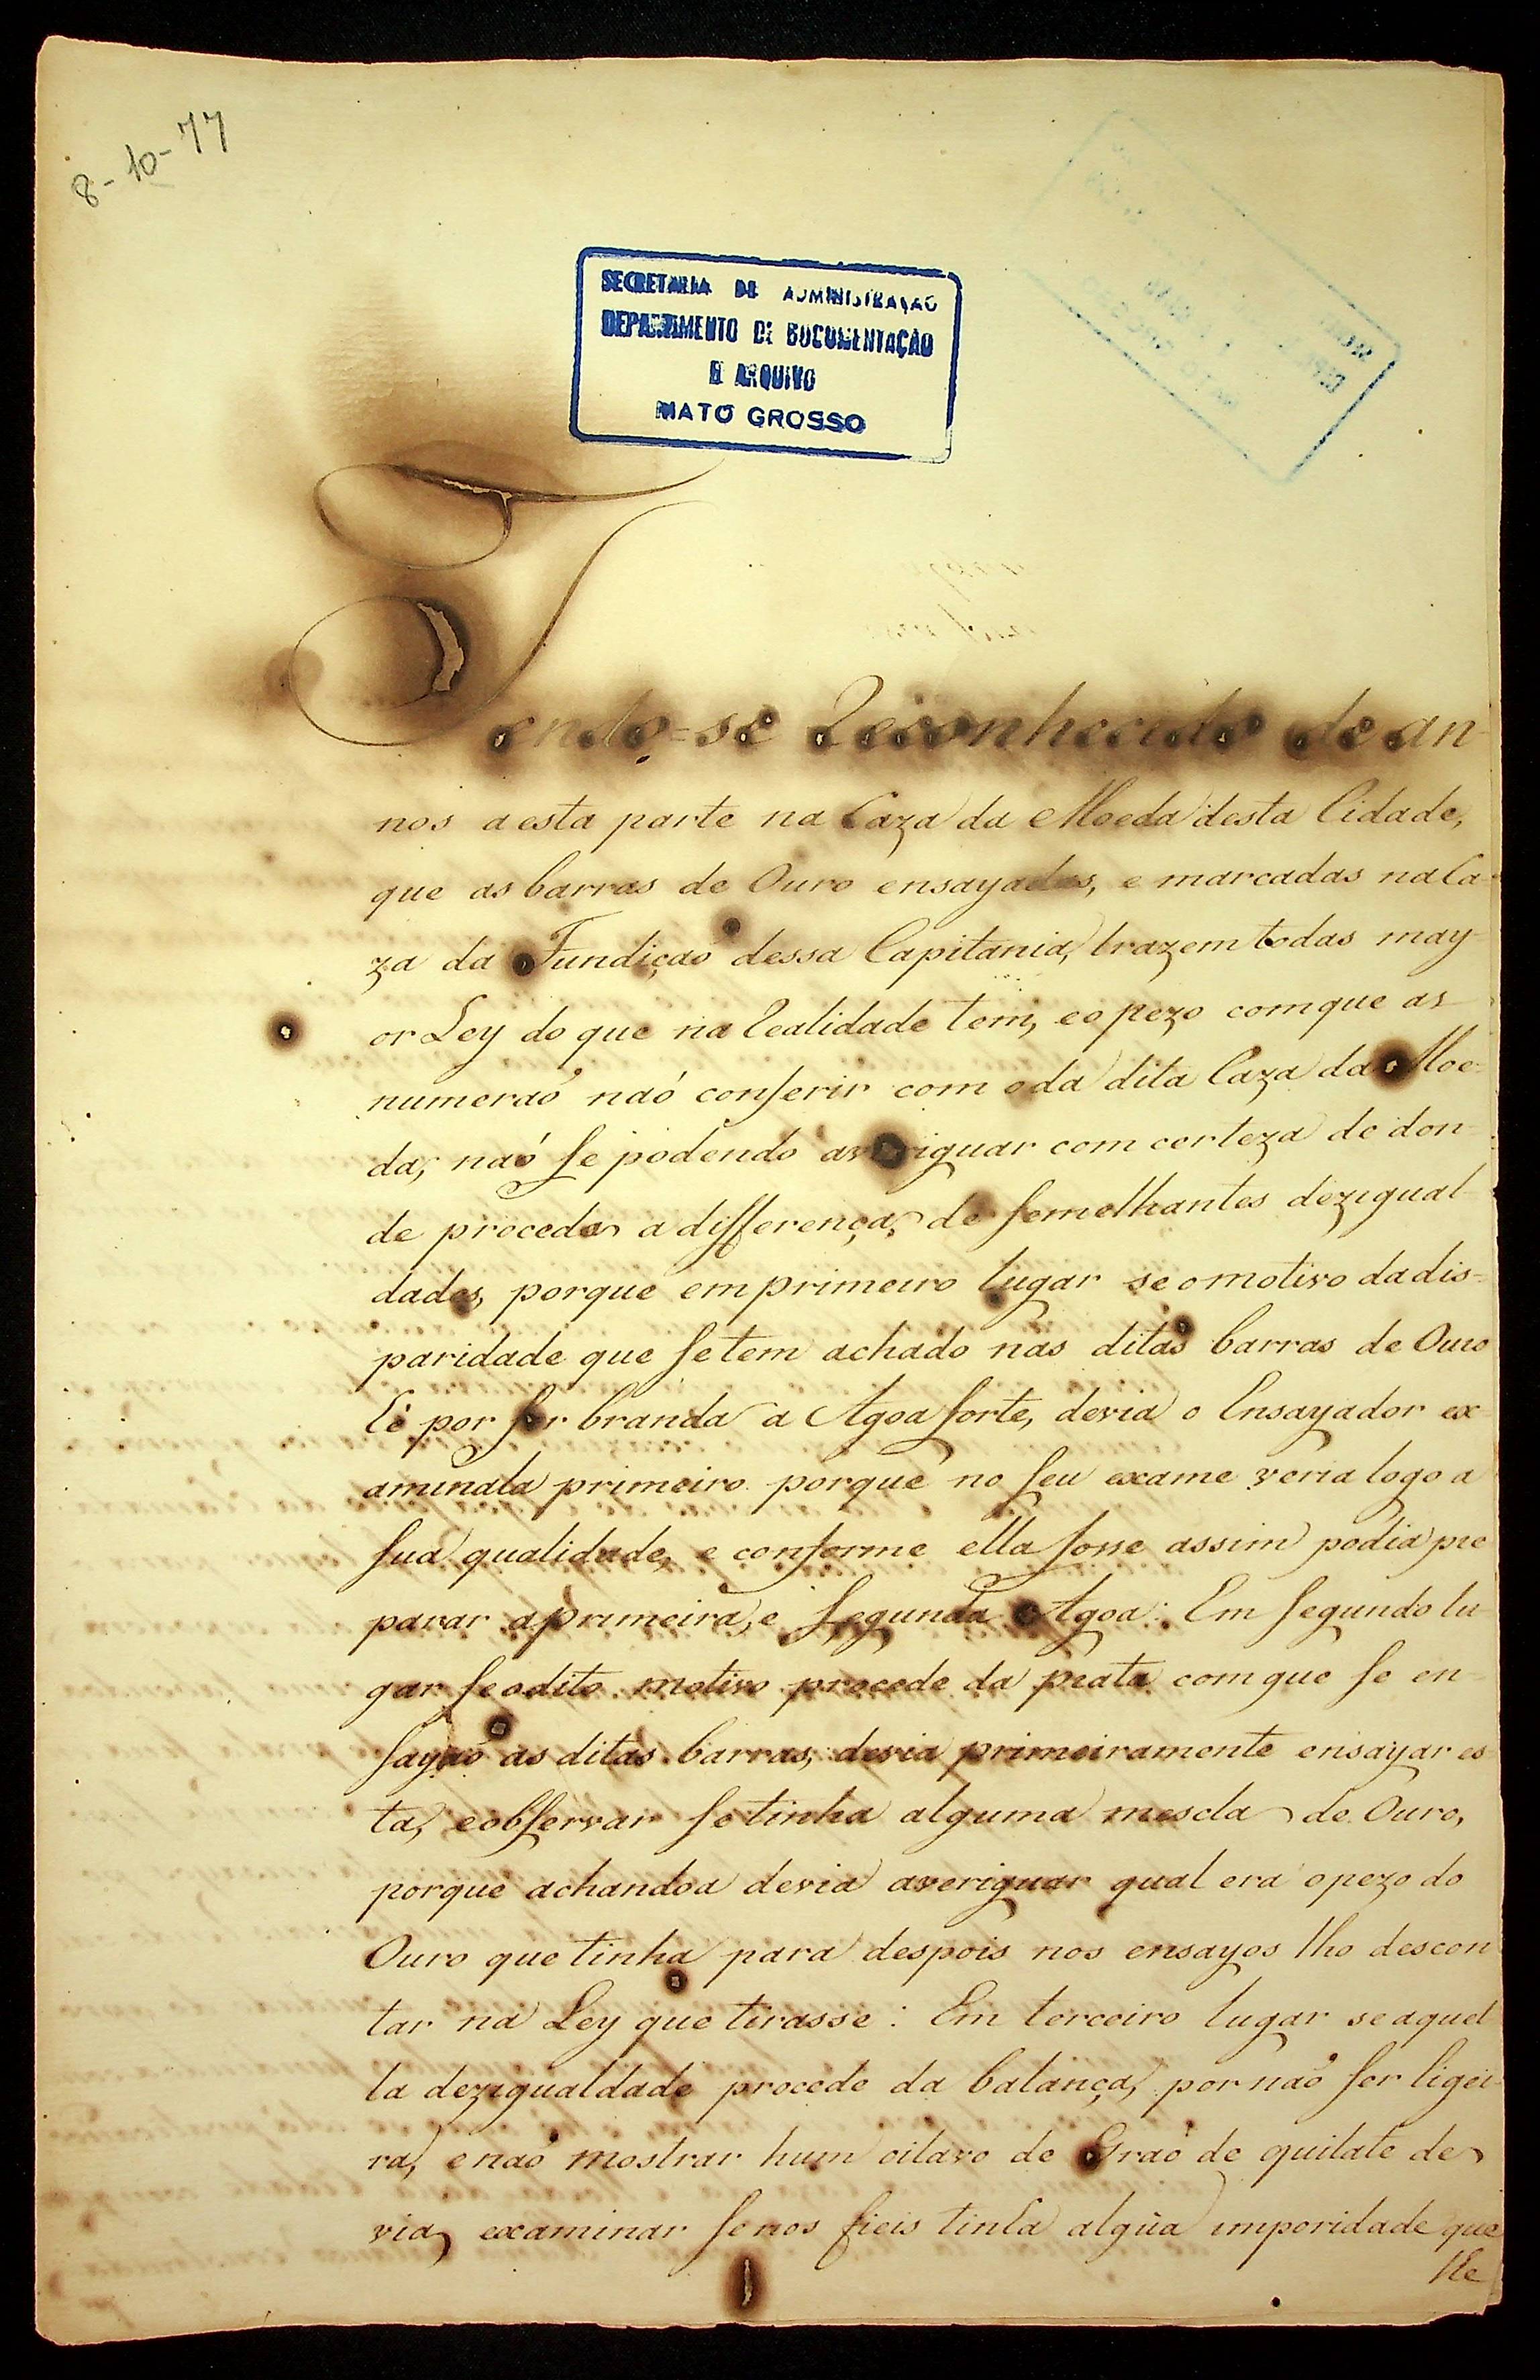 8-10-77
SECRETARIA DE ADMINISTRAÇÃO
DEPARTAMENTO DE DOCUMENTAÇÃO
E ARQUIVO
MATO GROSSO
Tendo-se Reconhecido de an-
nos a esta parte na Caza da Moeda desta Cidade,
que as barras de Ouro ensayadas, e marcadas na Ca-
za da Fundiçaõ dessa Capitania, trazem todas may-
or Ley do que na Realidade tem, e o pezo com que as
numeraõ naõ conferir com o da dita Caza da Moe-
da, naõ se podendo averiguar com certeza de don-
de procede a differença de semelhantes dezigual-
dades, porque em primeiro lugar se o motivo da dis-
paridade que se tem achado nas ditas barras de Ouro
hé por ser branda a Agoa forte, devia o Ensayador ex
aminala primeiro porque no seu exame veria logo a
sua qualidade, e conforme ella fosse assim podia pre
parar a primeira, e segunda Agoa: Em segundo lu-
gar se o dito motivo procede da prata com que se en-
sayaõ as ditas barras, devia primeiramente ensayar es
ta, e observar se tinha alguma mescla de Ouro,
porque achandoa devia averiguar qual era o pezo do
Ouro que tinha para despois nos ensayos lho descon
tar na Ley que tirasse: Em terceiro lugar se aquel
la dezigualdade procede da balança, por naõ ser ligei-
ra, e naõ mostrar hum oitavo de Graõ de quilate de
via examinar se nos fieis tinha algũa imporidade que
lhe